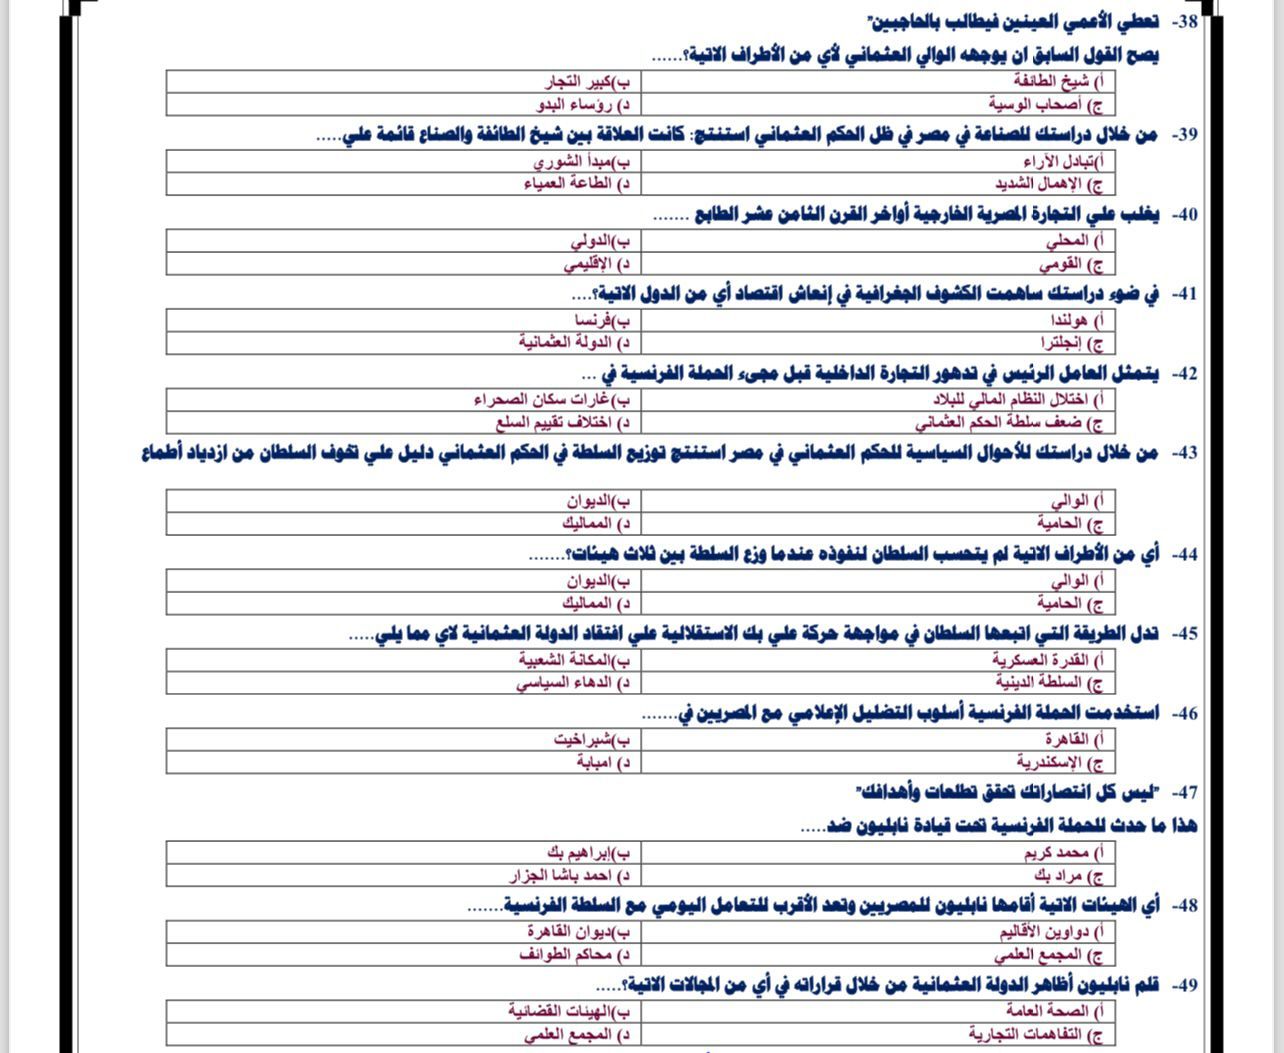 38- تعطي الأعمي العينين فيطالب بالحاجبين"
يصح القول السابق ان يوجهه الوالي العثماني لأي من الأطراف الاتية؟......
أ) شيخ الطائفة ب)كبير التجار
ج) أصحاب الوسية د) رؤساء البدو
39- من خلال دراستك للصناعة في مصر في ظل الحكم العثماني استنتج: كانت العلاقة بين شيخ الطائفة والصناع قائمة علي.....
أ)تبادل الآراء ب)مبدأ الشوري
ج) الإهمال الشديد د) الطاعة العمياء
40- يغلب علي التجارة المصرية الخارجية أواخر القرن الثامن عشر الطابع .......
أ) المحلي ب)الدولي
ج) القومي د) الإقليمي
41- في ضوء دراستك ساهمت الكشوف الجغرافية في إنعاش اقتصاد أي من الدول الاتية؟....
أ) هولندا ب)فرنسا
ج) إنجلترا د) الدولة العثمانية
42- يتمثل العامل الرئيس في تدهور التجارة الداخلية قبل مجىء الحملة الفرنسية في ...
أ) اختلال النظام المالي للبلاد ب)غارات سكان الصحراء
ج) ضعف سلطة الحكم العثماني د) اختلاف تقييم السلع
43- من خلال دراستك للأحوال السياسية للحكم العثماني في مصر استنتج توزيع السلطة في الحكم العثماني دليل علي تخوف السلطان من ازدياد أطماع
أ) الوالي ب)الديوان
ج) الحامية د) المماليك
44- أي من الأطراف الاتية لم يتحسب السلطان لنفوذه عندما وزع السلطة بين ثلاث هيئات؟.......
أ) الوالي ب)الديوان
ج) الحامية د) المماليك
45- تدل الطريقة التي اتبعها السلطان في مواجهة حركة علي بك الاستقلالية علي افتقاد الدولة العثمانية لاي مما يلي.....
أ) القدرة العسكرية ب)المكانة الشعبية
ج) السلطة الدينية د) الدهاء السياسي
46- استخدمت الحملة الفرنسية أسلوب التضليل الإعلامي مع المصريين في.......
أ) القاهرة ب)شبراخيت
ج) الإسكندرية د) امبابة
47- "ليس كل انتصاراتك تحقق تطلعات وأهدافك"
هذا ما حدث للحملة الفرنسية تحت قيادة نابليون ضد.....
أ) محمد كريم ب)إبراهيم بك
ج) مراد بك د) احمد باشا الجزار
48- أي الهيئات الاتية أقامها نابليون للمصريين وتعد الأقرب للتعامل اليومي مع السلطة الفرنسية.......
أ) دواوين الأقاليم ب)ديوان القاهرة
ج) المجمع العلمي د) محاكم الطوائف
49- قلم نابليون أظاهر الدولة العثمانية من خلال قراراته في أي من المجالات الاتية؟.....
أ) الصحة العامة ب)الهيئات القضائية
ج) التفاهمات التجارية د) المجمع العلمي